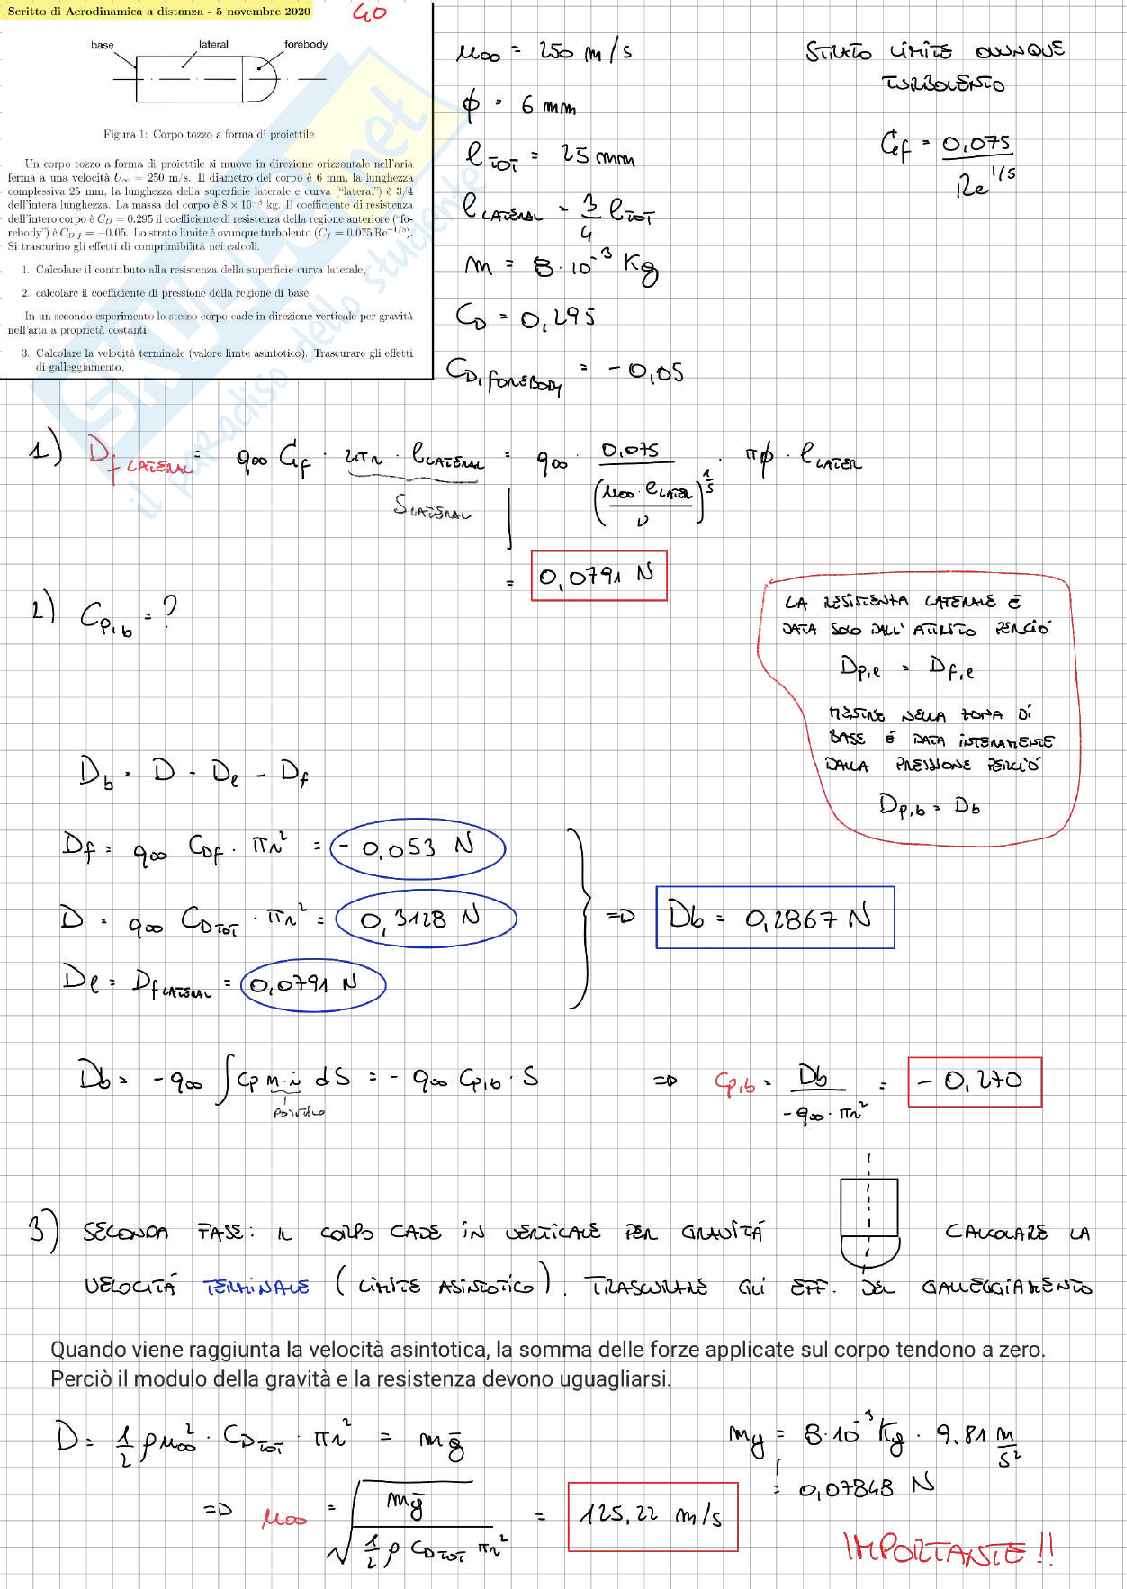 Scritto di Aerodinamica a distanza - 5 novembre 2020
40
base lateral forebody
Figura 1: Corpo tozzo a forma di proiettile
Un corpo tozzo a forma di proiettile si muove in direzione orizzontale nell'aria
ferma a una velocità U∞ = 250 m/s. Il diametro del corpo è 6 mm, la lunghezza
complessiva 25 mm, la lunghezza della superficie laterale e curva ("lateral") è 3/4
dell'intera lunghezza. La massa del corpo è 8 × 10⁻³ kg. Il coefficiente di resistenza
dell'intero corpo è C_D = 0.295 il coefficiente di resistenza della regione anteriore ("fo-
rebody") è C_Df = −0.05. Lo strato limite è ovunque turbolento (C_f = 0.075 Re^−1/5).
Si trascurino gli effetti di comprimibilità nei calcoli.
1. Calcolare il contributo alla resistenza della superficie curva laterale,
2. calcolare il coefficiente di pressione della regione di base
In un secondo esperimento lo stesso corpo cade in direzione verticale per gravità
nell'aria a proprietà costanti
3. Calcolare la velocità terminale (valore limite asintotico). Trascurare gli effetti
di galleggiamento.
SKUOLA.net
il paradiso dello studente
μ∞ = 250 m/s
ϕ = 6 mm
l TOT = 25 mm
l LATERAL = 3/4 l TOT
m = 8·10⁻³ Kg
C_D = 0,295
C_D,FOREBODY = -0,05
STRATO LIMITE OVUNQUE
TURBOLENTO
C_f = 0,075 / Re^1/5
1) D_f LATERAL = q∞ C_f · 2πr · l LATERAL = q∞ · 0,075 / (μ∞ · l LATER / ν)^1/5 · πϕ · l LATER
S LATERAL
= 0,0791 N
2) C_p,b = ?
LA RESISTENZA LATERALE È
DATA SOLO DALL'ATTRITO PERCIÒ
D_p,e = D_f,e
MENTRE NELLA ZONA DI
BASE È DATA INTERAMENTE
DALLA PRESSIONE PERCIÒ
D_p,b = D_b
D_b = D - D_e - D_f
D_f = q∞ C_Df · πr² = -0,053 N
D = q∞ C_D TOT · πr² = 0,3128 N
D_l = D_f LATERAL = 0,0791 N
=D D_b = 0,2867 N
D_b = -q∞ ∫ C_p n · i dS = -q∞ C_p,b · S
POSITIVO
=D C_p,b = D_b / -q∞ · πr² = -0,270
3) SECONDA FASE: IL CORPO CADE IN VERTICALE PER GRAVITÁ CALCOLARE LA
VELOCITÁ TERMINALE (LIMITE ASINTOTICO). TRASCURARE GLI EFF. DEL GALLEGGIAMENTO
Quando viene raggiunta la velocità asintotica, la somma delle forze applicate sul corpo tendono a zero.
Perciò il modulo della gravità e la resistenza devono uguagliarsi.
D = 1/2 ρ μ∞² · C_D TOT · πr² = mg
mg = 8·10⁻³ Kg · 9.81 m/s²
= 0,07848 N
=D μ∞ = √(mg / 1/2 ρ C_D TOT πr²) = 125,22 m/s
IMPORTANTE!!